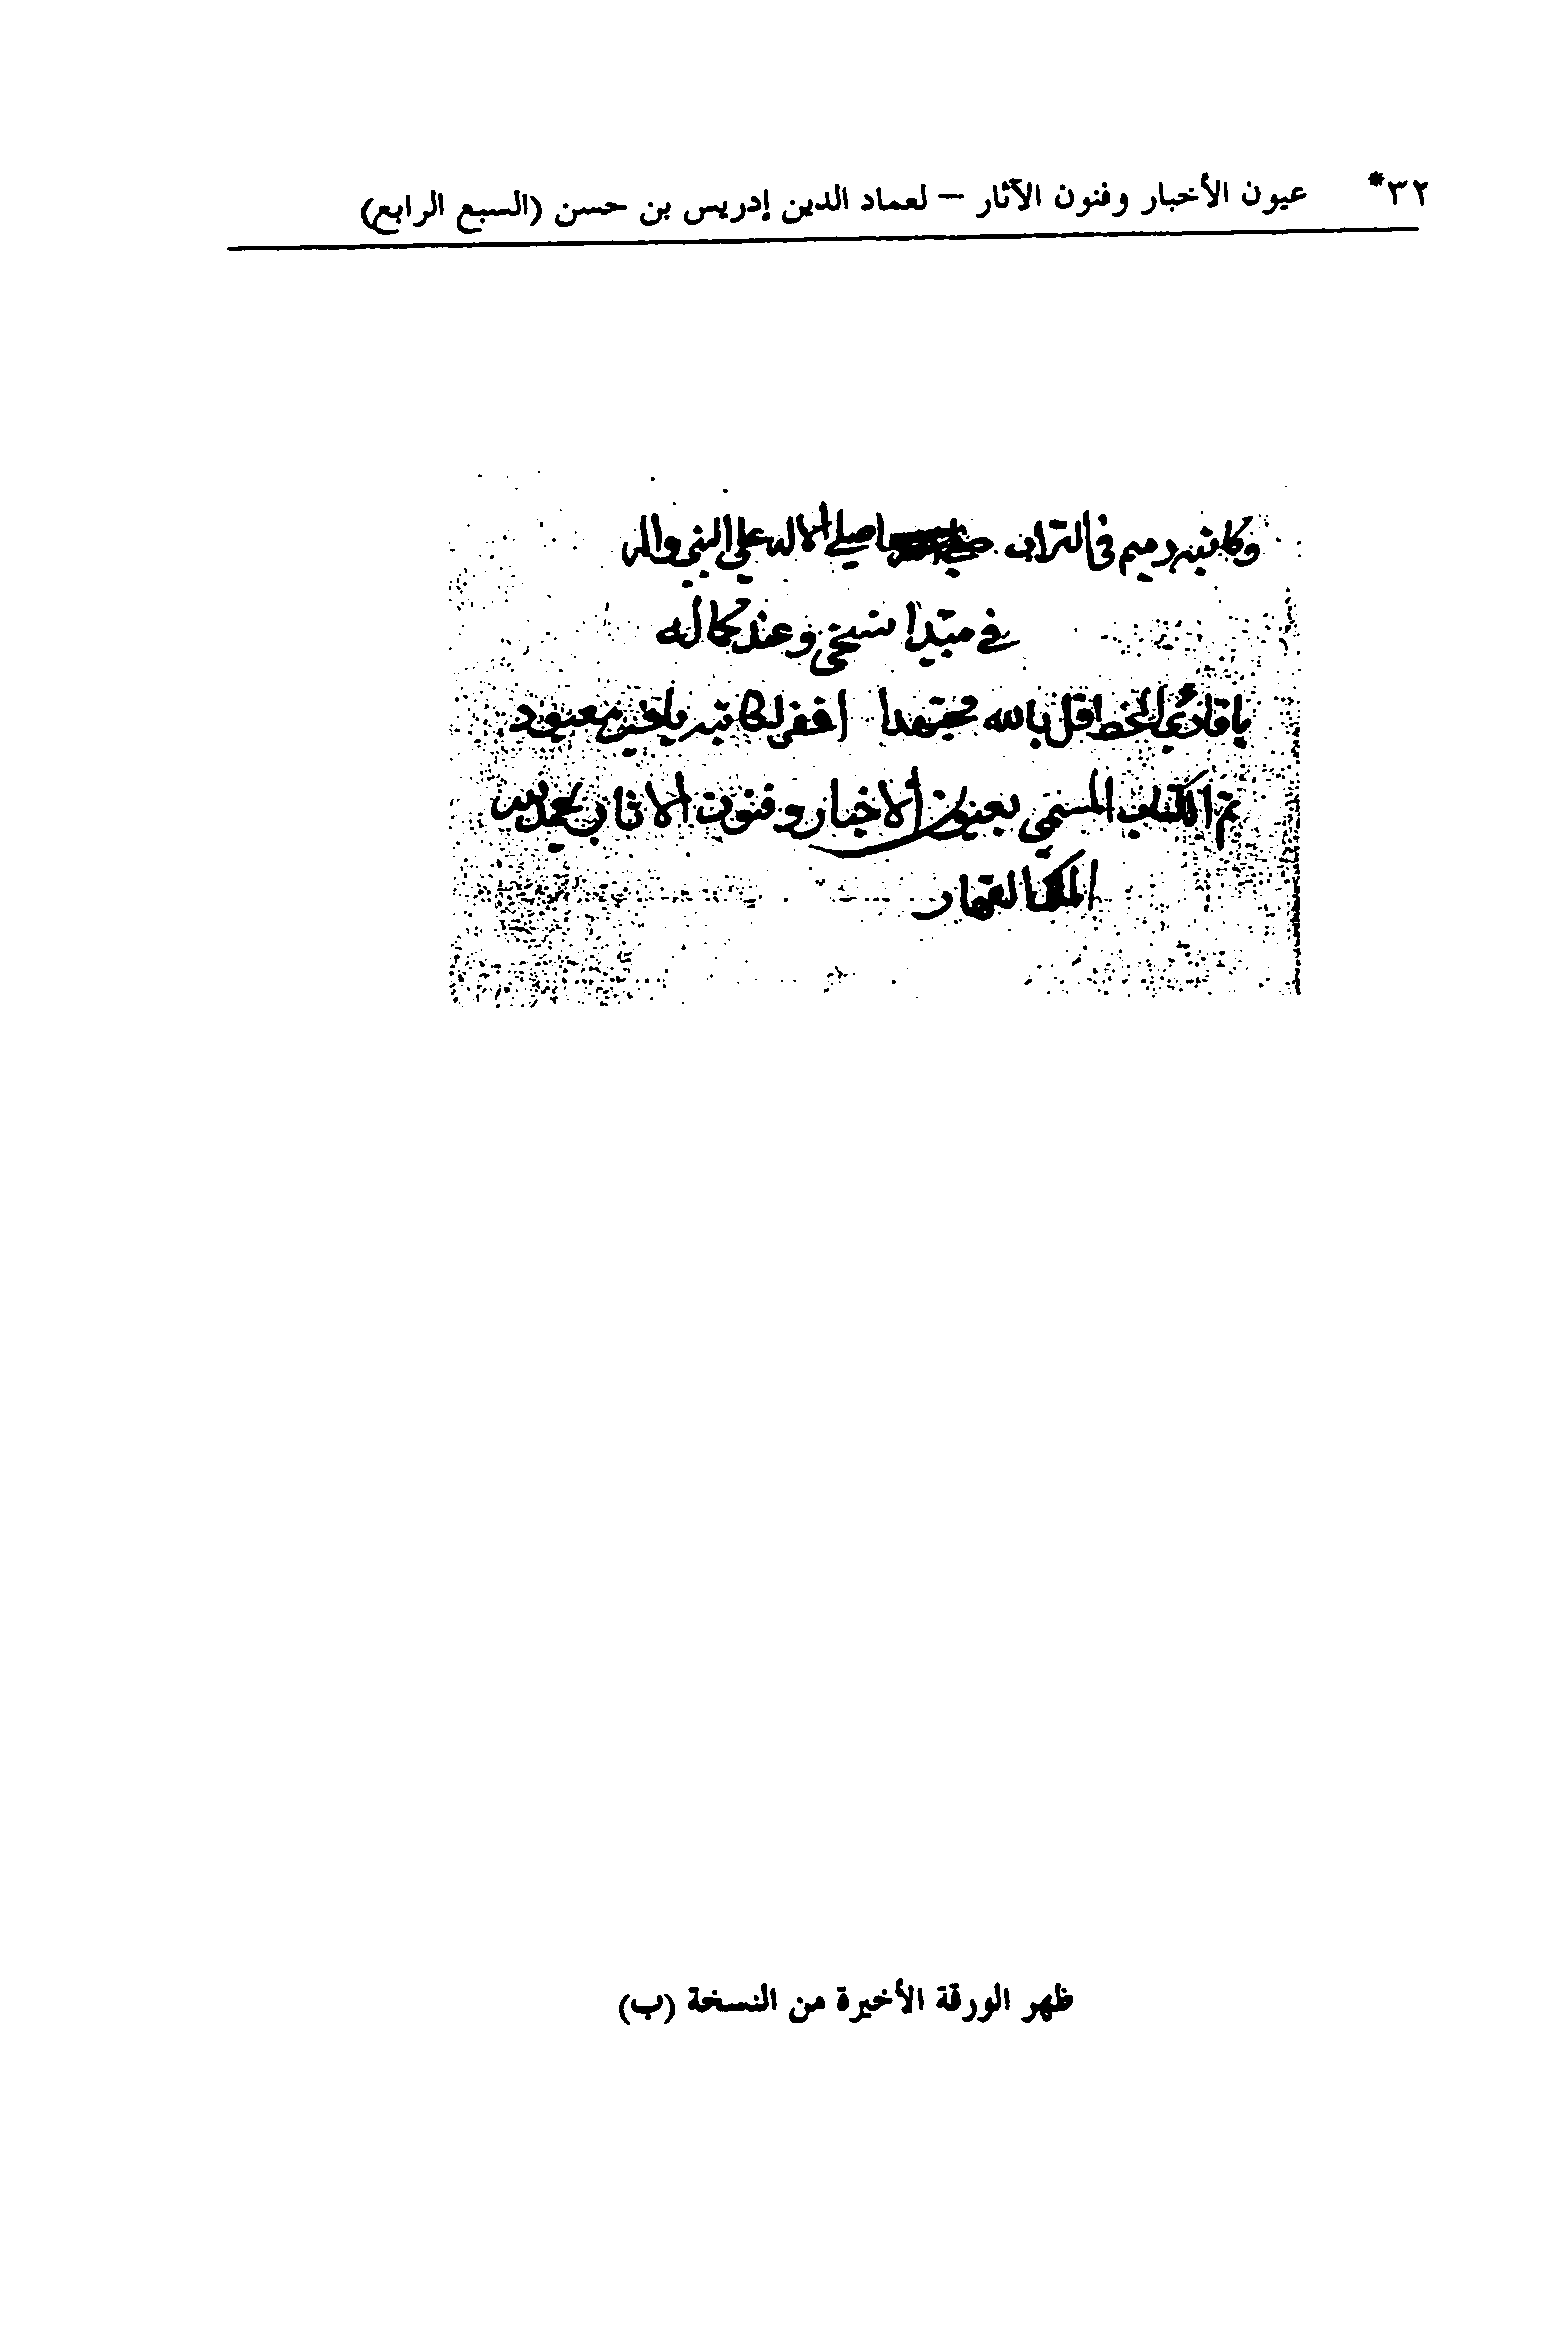 ٣٢* عيون الأخبار وفنون الآثار – لعماد الدين إدريس بن حسن (السبع الرابع)
وكاتبه رميم في التراب صلى الاله على النبي واله
في مبتدا نسخي وعند كماله
يا قارئ الخط قل بالله مجتهدا اغفر لكاتبه يا خير معبود
تم الكتاب المسمى بعيون الاخبار وفنون الاثار بحمد الله
الملك القهار
ظهر الورقة الأخيرة من النسخة (ب)